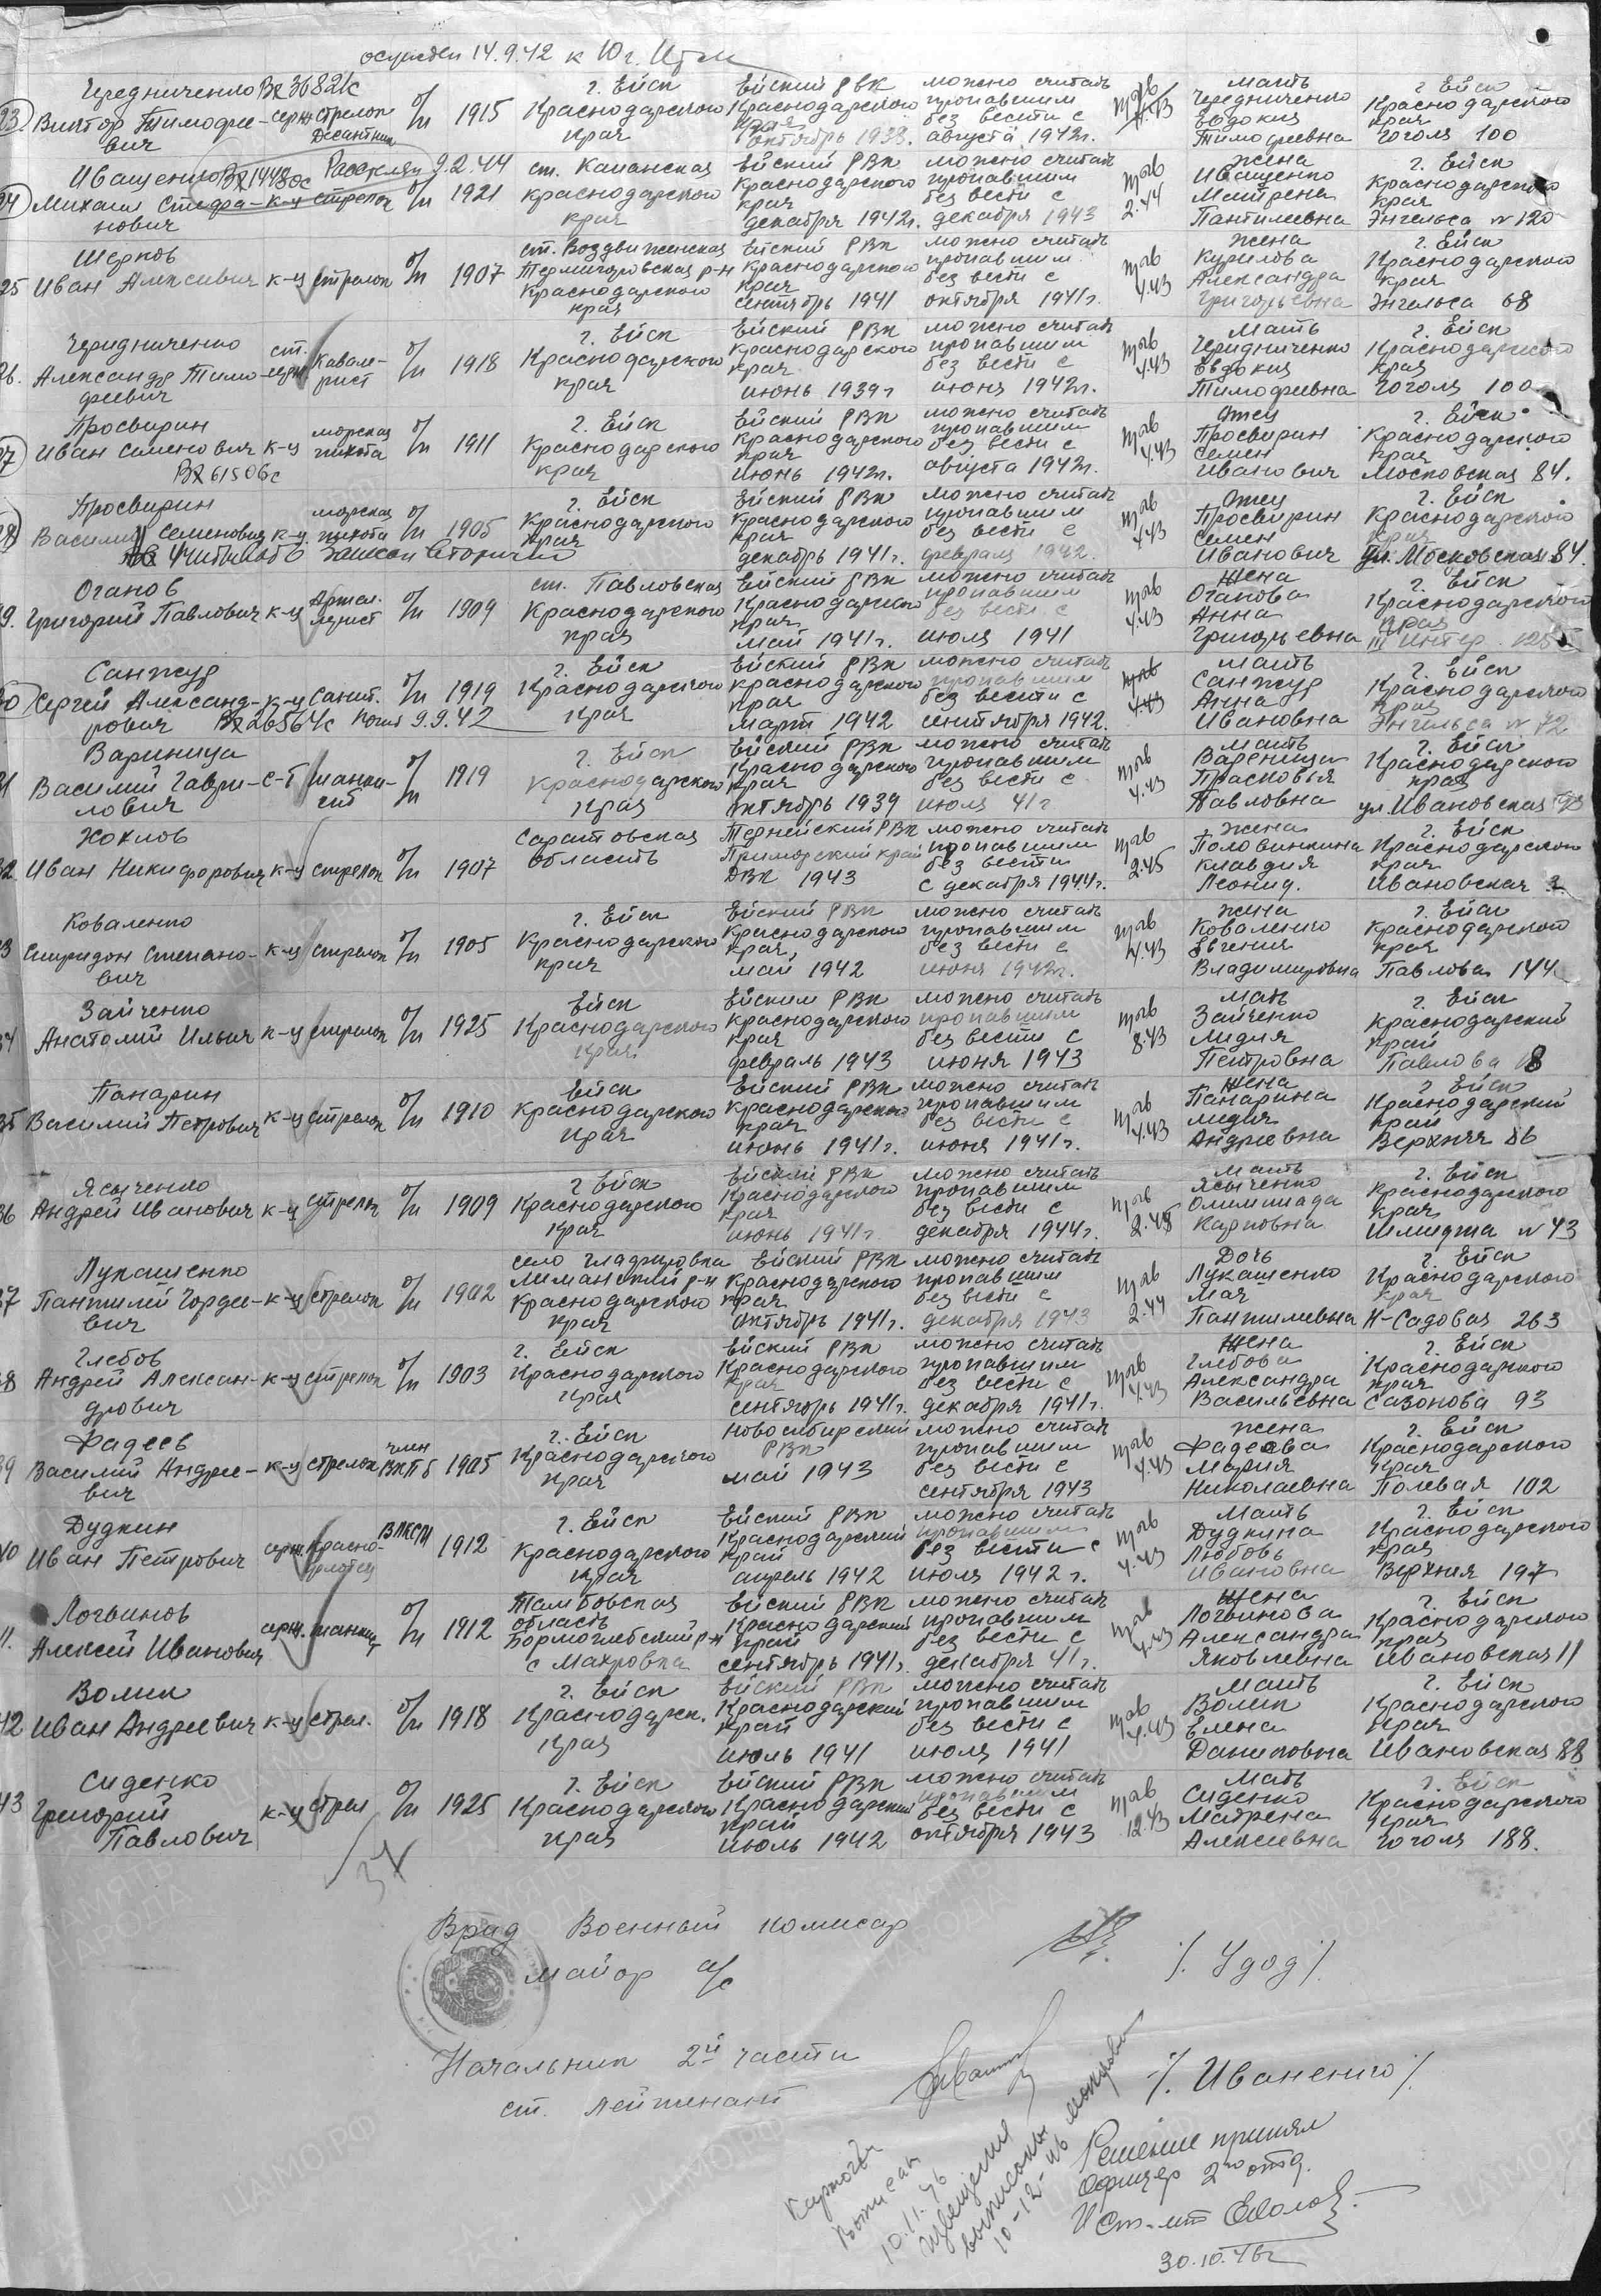 осужден 14.9.42 к 10 г. ИТЛ
23 Чередниченко Виктор Тимофеевич серж стрелок Десантник б/п 1915 г. Ейск Краснодарского края Ейский РВК Краснодарского края октябрь можно считать пропавшим без вести с августа 1942г. мать Чередниченко Евдокия Тимофеевна г. Ейск Краснодарского края Гоголя 100
24 Иващенко Михаил Стефанович к-ц стрелок Расстрелян 9.2.44 б/п 1921 ст. Краснодарского края Ейский РВК Краснодарского края декабря 1942г. можно считать пропавшим без вести с декабря 1943 2.44 жена Иващенко Матрена Пантилеевна г. Ейск Краснодарского края Энгельса № 120
25 Иван Алексеевич к-ц стрелок б/п 1907 ст. Воздвиженская р-н Краснодарского края Ейский РВК Краснодарского края сентябрь 1941 можно считать пропавшим без вести с октября 1941г. 4.43 жена Курилова Александра Григорьевна г. Ейск Краснодарского края Энгельса 68
26. Чередниченко Александр Тимофеевич ст. серж кавалерист б/п 1918 г. Ейск Краснодарского края Ейский РВК Краснодарского края июнь 1939г можно считать пропавшим без вести с июня 1942г. 4.43 мать Чередниченко Евдокия Тимофеевна г. Ейск Краснодарского края Гоголя 100
27 Просвирин Иван Семенович к-ц морская пехота б/п 1911 г. Ейск Краснодарского края Ейский РВК Краснодарского края июнь 1942г. можно считать пропавшим без вести с августа 1942г. 4.43 отец Просвирин Семен Иванович г. Ейск Краснодарского края Московская 84.
28 Просвирин Василий Семенович к-ц морская пехота б/п 1905 г. Ейск Краснодарского края Ейский РВК Краснодарского края декабрь 1941г. можно считать пропавшим без вести с февраля 1942. 4.43 отец Просвирин Семен Иванович г. Ейск Краснодарского края ул. Московская 84.
29. Оганов Григорий Павлович к-ц Артиллерист б/п 1909 ст. Павловская Краснодарского края Ейский РВК Краснодарского края май 1941г. можно считать пропавшим без вести с июля 1941 4.43 жена Оганова Анна Григорьевна г. Ейск Краснодарского края III Интер. 125
30 Санжур Сергей Александрович к-ц санит. погиб 9.9.42 б/п 1919 г. Ейск Краснодарского края Ейский РВК Краснодарского края март 1942 можно считать пропавшим без вести с сентября 1942. 4.43 мать Санжур Анна Ивановна г. Ейск Краснодарского края Энгельса № 72
31 Вариница Василий Гаврилович с-т танкист б/п 1919 г. Ейск Краснодарского края Ейский РВК Краснодарского края октябрь 1939 можно считать пропавшим без вести с июля 41г 4.43 мать Прасковья Павловна г. Ейск Краснодарского края ул. Ивановская
32 Хохлов Иван Никифорович к-ц стрелок б/п 1907 Саратовская область Тернейский РВК Приморский край ДВК 1943 можно считать пропавшим без вести с декабря 1944г. 2.45 жена Половинкина Клавдия Леонид. г. Ейск Краснодарского края Ивановская
33 Коваленко Спиридон Степанович к-ц стрелок б/п 1905 г. Ейск Краснодарского края Ейский РВК Краснодарского края, май 1942 можно считать пропавшим без вести с июня 1942г. 4.43 жена Коваленко Евгения Владимировна г. Ейск Краснодарского края Павлова 144
34 Зайченко Анатолий Ильич к-ц стрелок б/п 1925 Ейск Краснодарского края Ейский РВК Краснодарского края февраль 1943 можно считать пропавшим без вести с июня 1943 8.43 мать Зайченко Лидия Петровна г. Ейск Краснодарский край Павлова
35 Панарин Василий Петрович к-ц стрелок б/п 1910 Ейск Краснодарского края Ейский РВК Краснодарского края июнь 1941г. можно считать пропавшим без вести с июня 1941г. 4.43 жена Панарина Лидия Андреевна г. Ейск Краснодарский край Верхняя 86
36 Ясыченко Андрей Иванович к-ц стрелок б/п 1909 г Ейск Краснодарского края Ейский РВК Краснодарского края июнь 1941г. можно считать пропавшим без вести с декабря 1944г. мать Ясыченко Олимпиада Карповна г. Ейск Краснодарского края Шмидта № 43
37 Лукашенко Пантилей Гордеевич к-ц стрелок б/п 1902 село Глафировка Лиманский р-н Краснодарского края Ейский РВК Краснодарского края октябрь 1941г. можно считать пропавшим без вести с декабря 1943 2.44 Дочь Лукашенко Мая Пантилеевна г. Ейск Краснодарского края Н-Садовая 263
38 Глебов Андрей Александрович к-ц стрелок б/п 1903 г. Ейск Краснодарского края Ейский РВК Краснодарского края сентябрь 1941г. можно считать пропавшим без вести с декабря 1941г. 4.43 жена Глебова Александра Васильевна г. Ейск Краснодарского края Сазонова 93
39 Фадеев Василий Андреевич к-ц стрелок член ВКПб 1905 г. Ейск Краснодарского края Новосибирский РВК май 1943 можно считать пропавшим без вести с сентября 1943 жена Фадеева Мария Николаевна г. Ейск Краснодарского края Полевая 102
40 Дудкин Иван Петрович серж. краснофлотец ВЛКСМ 1912 г. Ейск Краснодарского края Ейский РВК Краснодарский край апрель 1942 можно считать пропавшим без вести с июля 1942г. 4.43 мать Дудкина Любовь Ивановна г. Ейск Краснодарского края Верхняя 197
41. Логвинов Алексей Иванович серж. танкист б/п 1912 Тамбовская область р-н с Махровка Ейский РВК Краснодарский край сентябрь 1941г. можно считать пропавшим без вести с декабря 41г. 4.43 жена Логвинова Александра Яковлевна г. Ейск Краснодарского края Ивановская 11
42 Волик Иван Андреевич к-ц стрел. б/п 1918 г. Ейск Краснодарск. края Ейский РВК Краснодарский край июль 1941 можно считать пропавшим без вести с июля 1941 4.43 мать Волик Елена Даниловна г. Ейск Краснодарского края Ивановская 88
43 Сиденко Григорий Павлович к-ц стрел б/п 1925 г. Ейск Краснодарского края Ейский РВК Краснодарский край июль 1942 можно считать пропавшим без вести с октября 1943 12.43 мать Сиденко Матрена Алексеевна г. Ейск Краснодарского края Гоголя 188.
Врид Военный комисар
майор а/с /Удод/
Начальник 2й части
ст. лейтенант /Иваненко/
10.11.46
Извещения выписаны
10-12-46
Решение принял
Офицер 2го отд.
Ст. л-т
30.10.46г